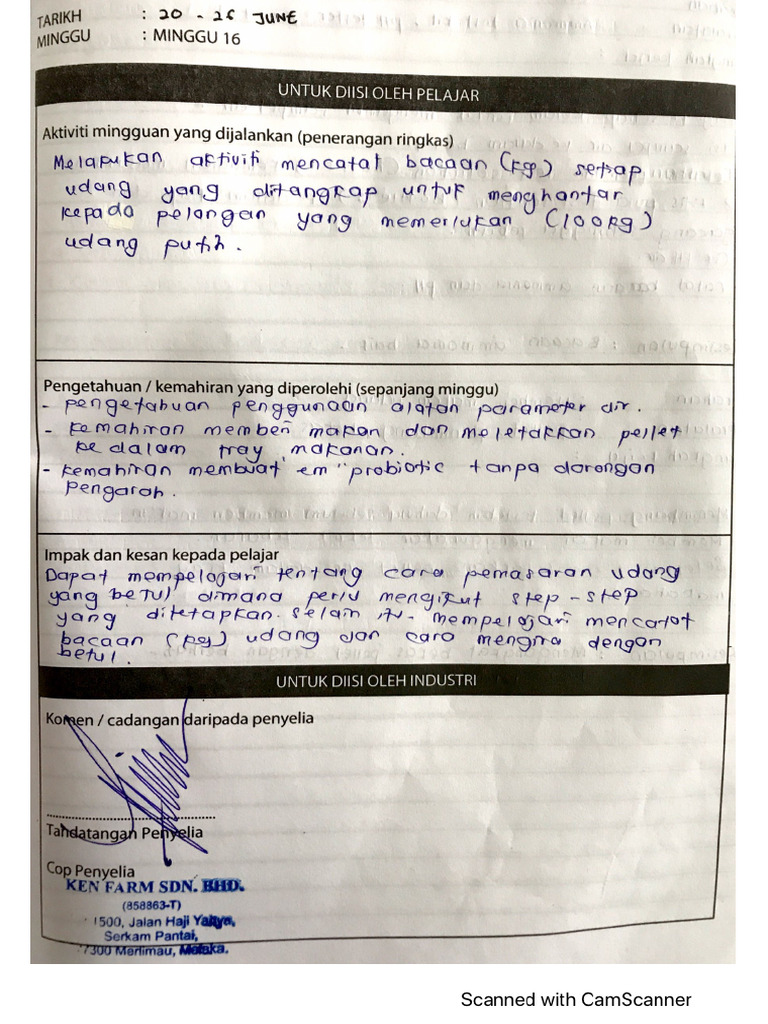 TARIKH : 20 - 26 JUNE
MINGGU : MINGGU 16
UNTUK DIISI OLEH PELAJAR
Aktiviti mingguan yang dijalankan (penerangan ringkas)
Melapukan aktiviti mencatat bacaan (kg) setiap
udang yang ditangkap untuk menghantar
kepada pelangan yang memerlukan (100kg)
udang putih.
Pengetahuan / kemahiran yang diperolehi (sepanjang minggu)
- pengetahuan penggunaan alatan parameter air.
- kemahiran memberi makan dan meletakkan pellet
ke dalam tray makanan.
- kemahiran membuat em" probiotic tanpa dorongan
pengarah.
Impak dan kesan kepada pelajar
Dapat mempelajari tentang cara pemasaran udang
yang betul dimana perlu mengikut step-step
yang ditetapkan. Selain itu- mempelajari mencatat
bacaan (kg) udang dan cara mengira dengan
betul.
UNTUK DIISI OLEH INDUSTRI
Komen / cadangan daripada penyelia
Tandatangan Penyelia
Cop Penyelia
KEN FARM SDN. BHD.
(858863-T)
1500, Jalan Haji Yahya,
Serkam Pantai,
77300 Merlimau, Melaka.
Scanned with CamScanner